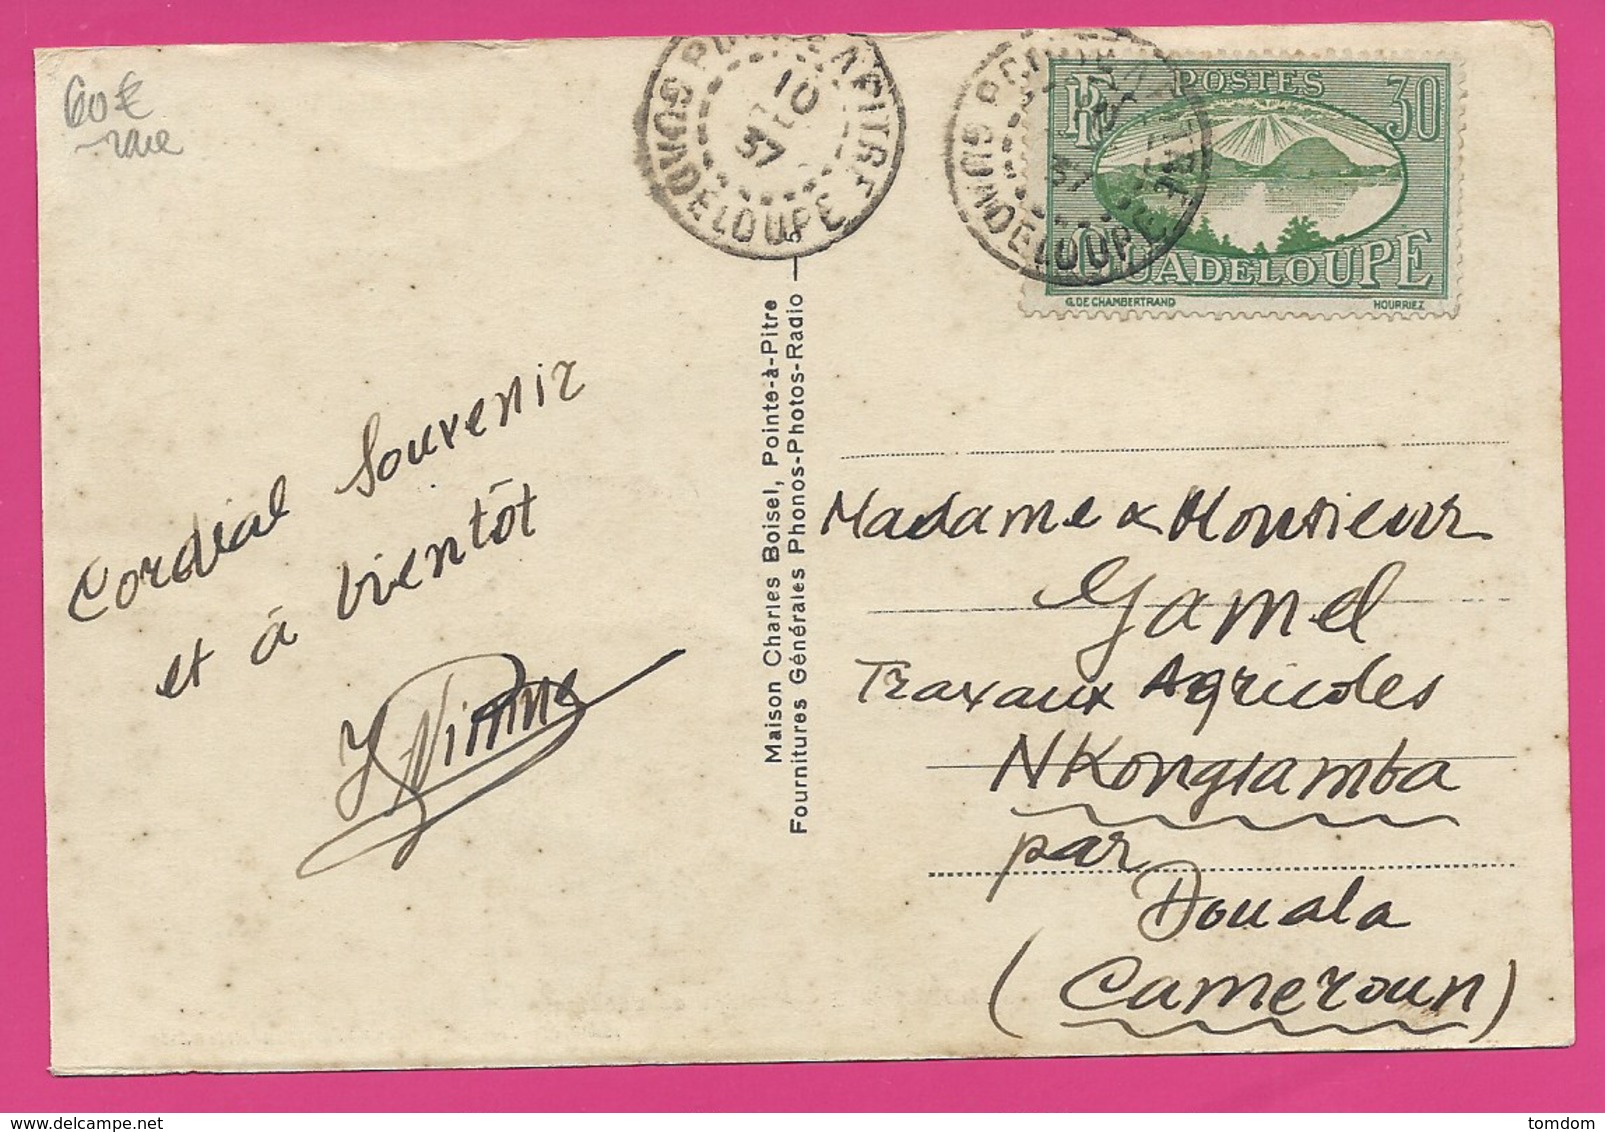 60€
rare
POINTE A PITRE
10
37
GUADELOUPE
POINTE A PITRE
37
GUADELOUPE
RF
POSTES
30
GUADELOUPE
G.DE CHAMBERTRAND
HOURRIEZ
Cordial Souvenir
et à bientôt
Maison Charles Boisel, Pointe-à-Pitre
Fournitures Générales Phonos-Photos-Radio — 5
Madame & Monsieur
Gamel
Travaux Agricoles
NKongsamba
par
Douala
(Cameroun)
delcampe.net
tomdom